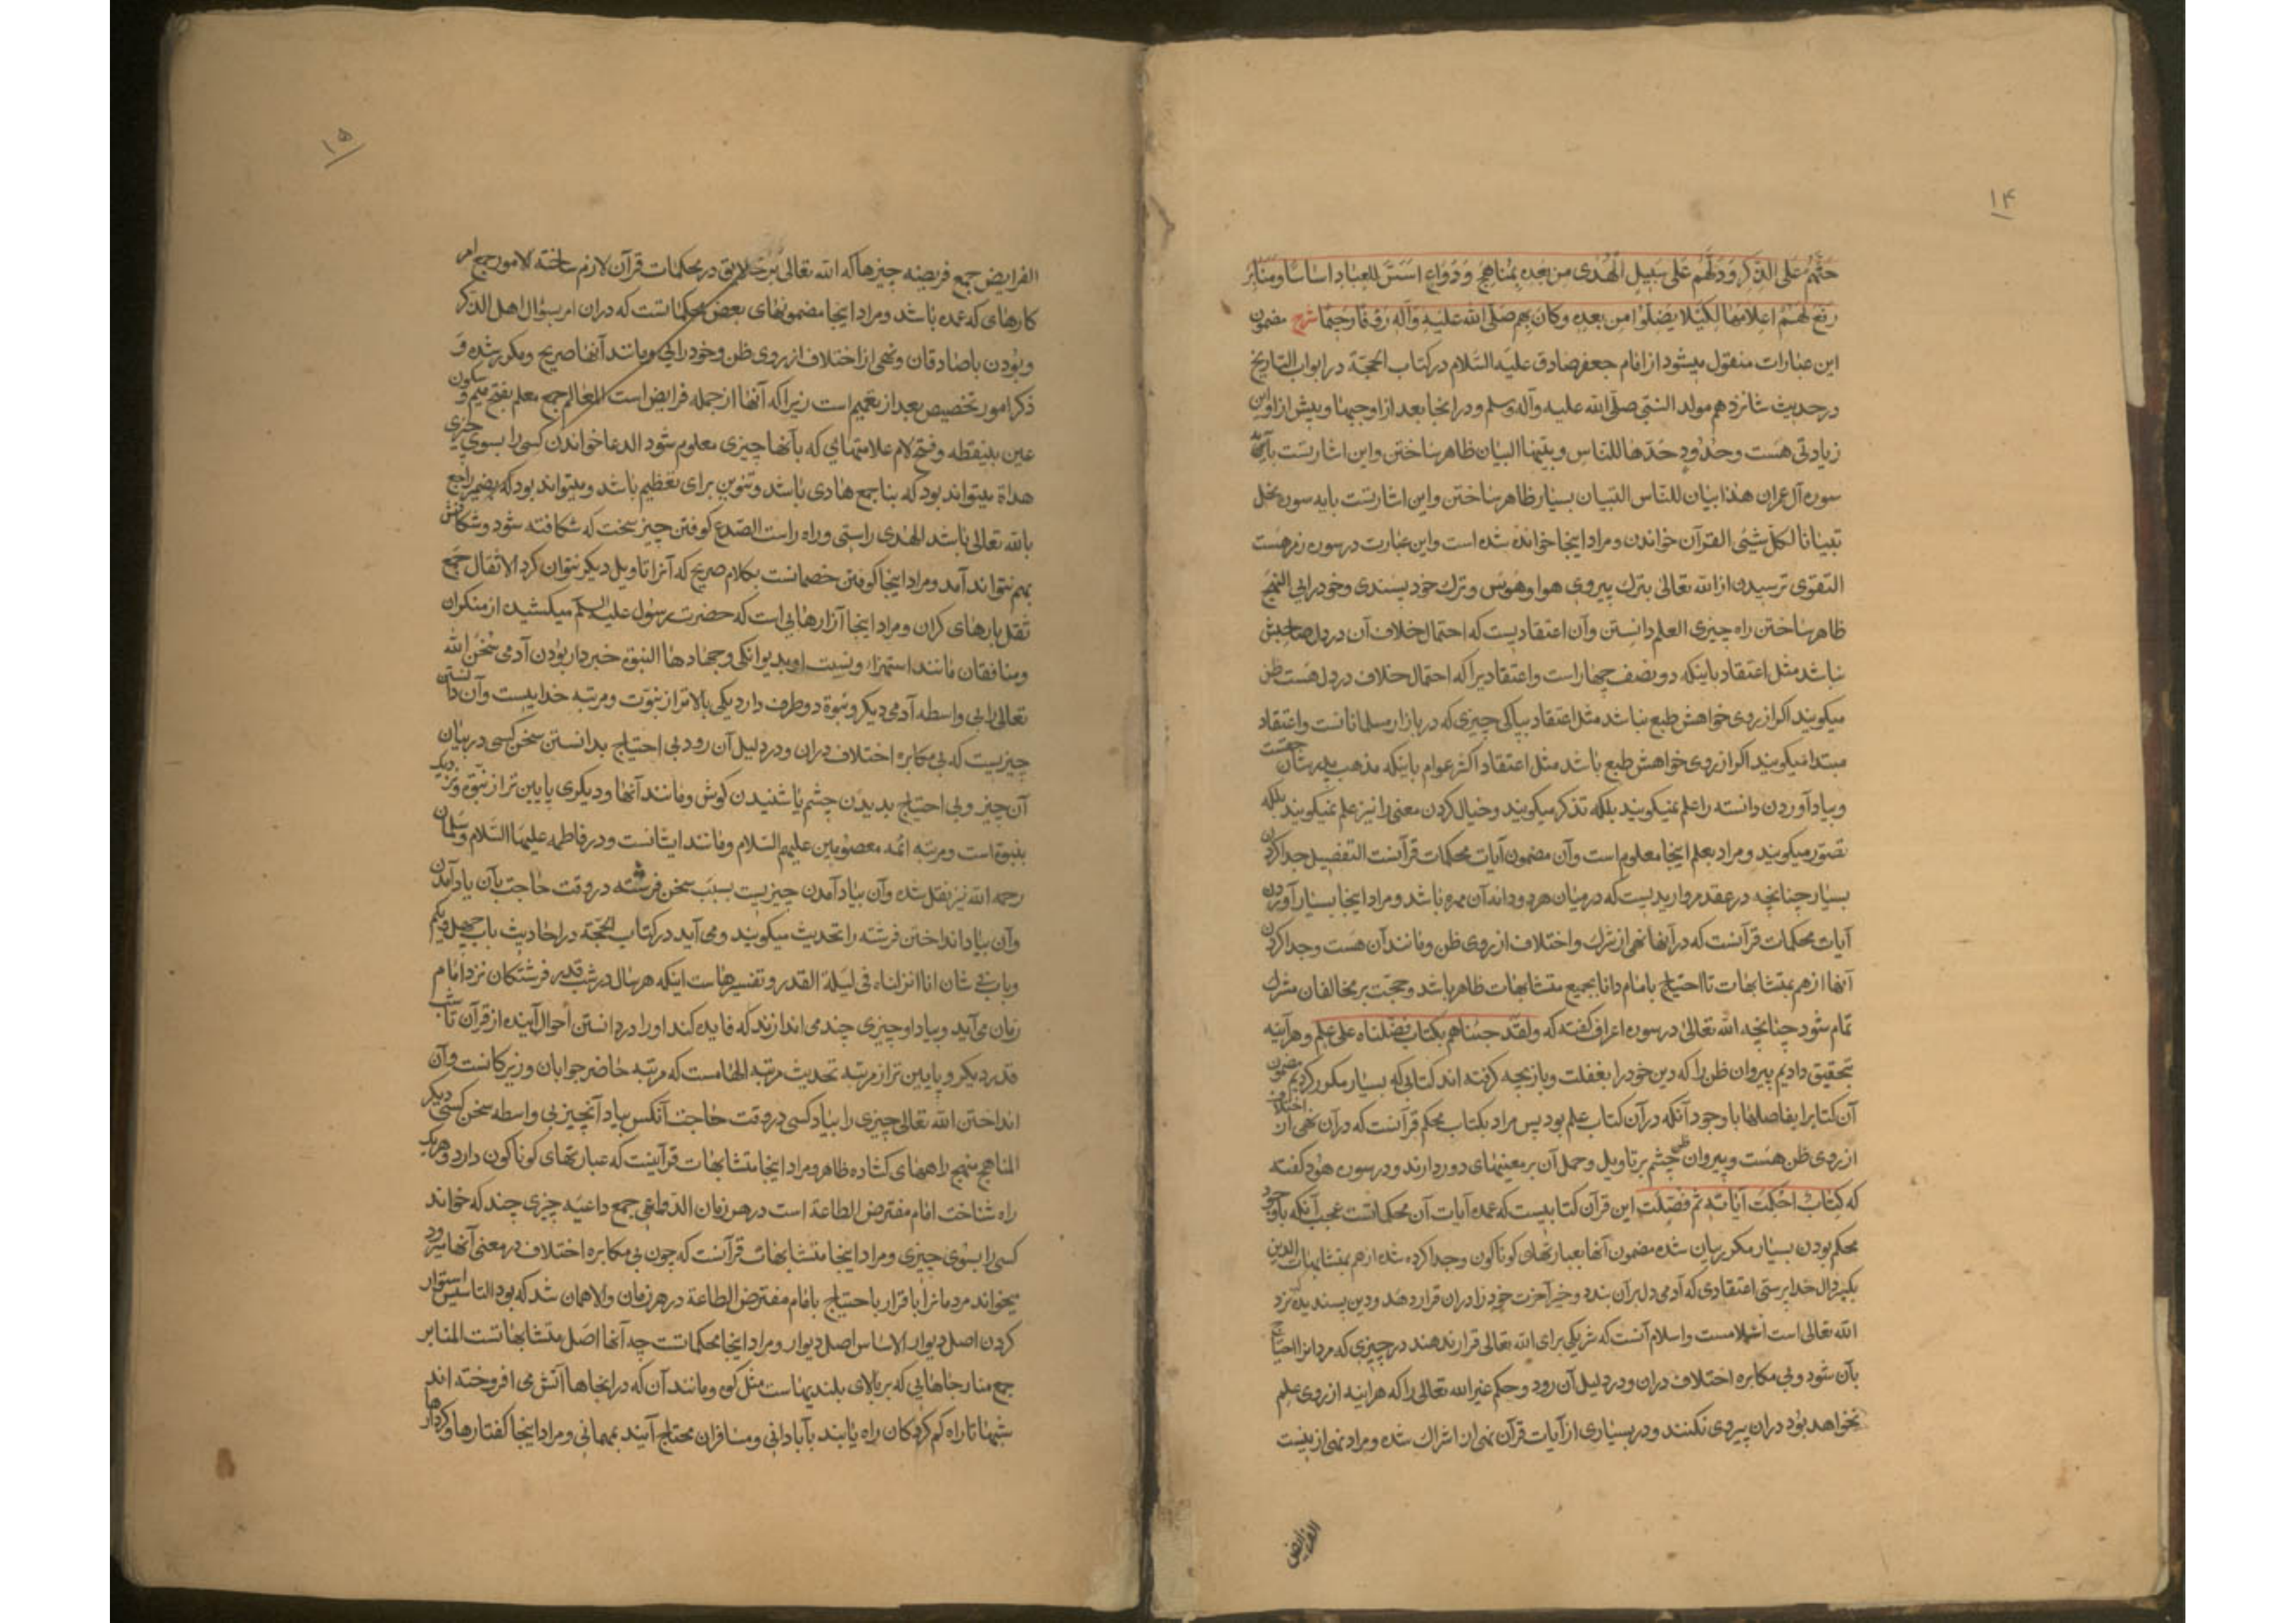 ۱۴
حثّهم علی الذکر و دلهم علی سبیل الهدی من بعده بمناهج و دواع اسس للعباد اساسا و منابر
رفع لهم اعلامها لکیلا یضلوا من بعده و کان بهم صلی الله علیه و آله رؤفا رحیما شرح مضمون
این عبارات منقول میشود از امام جعفر صادق علیه السلام در کتاب الحجة در ابواب التاریخ
در حدیث شانزدهم مولد النبی صلی الله علیه و آله وسلم و در انجا بعد از اوجبها و پیش از او این
زیادتی هست و حدود حدّها للناس و بیّنها البیان ظاهر ساختن و این اشارتست بآیه
سوره آل عمران هذا بیان للناس التبیان بسیار ظاهر ساختن و این اشارتست بایه سوره نحل
تبیانا لکل شئی القرآن خواندن و مراد اینجا خوانده شده است و این عبارت در سوره زمر هست
التقوی ترسیدن از الله تعالی بترک پیروی هوا و هوس و ترک خود پسندی و خودرایی النهج
ظاهر ساختن راه چیزی العلم دانستن و آن اعتقادیست که احتمال خلاف آن در دل صاحبش
نباشد مثل اعتقاد باینکه دو نصف چهار است و اعتقادیرا که احتمال خلاف در دل هست ظن
میکویند اکر از روی خواهش طبع نباشد مثل اعتقاد بپاکی چیزی که در بازار مسلمانانست و اعتقاد
مبتدا میکویند اکر از روی خواهش طبع باشد مثل اعتقاد اکثر عوام باینکه مذهب پدرشان حقست
و بیاد آوردن دانسته را علم نمیکویند بلکه تذکر میکویند و خیال کردن معنی را نیز علم نمیکویند بلکه
تصور میکویند و مراد بعلم اینجا معلوم است و آن مضمون آیات محکمات قرآنست التفصیل جدا کردن
بسیار چنانچه در عقد مرواریدیست که در میان هر دو دانه آن مهره باشد و مراد اینجا بسیار آوردن
آیات محکمات قرآنست که در آنها نهی از شرک و اختلاف از روی ظن و مانند آن هست و جدا کردن
آنها از هم بمتشابهات تا احتیاج بامام دانا بجمیع متشابهات ظاهر باشد و حجت بر مخالفان مشرک
تمام شود چنانچه الله تعالی در سوره اعراف کفته که ولقد جئناهم بکتاب فصّلناه علی علم و هر آینه
بتحقیق دادیم پیروان ظن را که دین خود را بغفلت و بازیچه کرفته اند کتابی که بسیار مکرر کردیم مضمون
آن کتابرا بفاصلها با وجود آنکه در آن کتاب علم بود پس مراد بکتاب محکم قرآنست که در آن نهی از اختلاف
از روی ظن هست و پیروان ظن چشم بر تاویل و حمل آن بر معنیهای دور دارند و در سوره هود کفته
که کتاب احکمت آیاته ثم فصلت این قرآن کتابیست که عمده آیات آن محکماتست عجب آنکه باوجود
محکم بودن بسیار مکرر بیان شده مضمون آنها بعبارتهای کوناکون و جدا کرده شده از هم بمتشابهات الدین
بکسر دال خداپرستی اعتقادی که آدمی دل بر آن بندد و خیر آخرت خود را در ان قرار دهد و دین پسندیده نزد
الله تعالی است اسلامست و اسلام آنست که شریکی برای الله تعالی قرار ندهند در چیزی که مردمانرا احتیاج
بآن شود و بی مکابره اختلاف در ان و در دلیل آن رود و حکم غیر الله تعالی را که هر اینه از روی علم
نخواهد بود در ان پیروی نکنند و در بسیاری از آیات قرآن نهی از اشراک شده و مراد نهی از نیست
الفرایض
۱۵
الفرایض جمع فریضه چیزها که الله تعالی بر خلایق در محکمات قرآن لازم ساخته الامور جمع امر
کارهای که عمده باشد و مراد اینجا مضمونهای بعض محکماتست که در ان امر بسؤال اهل الذکر
و بودن با صادقان و نهی از اختلاف از روی ظن و خودرایی و مانند آنها صریح و مکرر شده و
ذکر امور تخصیص بعد از تعمیم است زیرا که آنها از جمله فرایض است المعالم جمع معلم بفتح میم و سکون
عین بینقطه و فتح لام علامتهایی که بآنها چیزی معلوم شود الدعا خواندن کسی را بسوی چیزی
هداة میتواند بود که بنا جمع هادی باشد و تنوین برای تعظیم باشد و میتواند بود که بضمیر راجع
بالله تعالی باشد الهدی راستی و راه راست الصدع کوفتن چیز سخت که شکافته شود و شکافش
بهم نتواند آمد و مراد اینجا کوفتن خصمانست بکلام صریح که آنرا تاویل دیکر نتوان کرد الاثقال جمع
ثقل بارهای کران و مراد اینجا آزارهایی است که حضرت رسول علیه السلم میکشید از منکران
و منافقان مانند استهزاء و نسبت او بدیوانکی و جهادها النبوة خبردار بودن آدمی سخن الله
تعالی را بی واسطه آدمی دیکر و نبوة دو طرف دارد یکی بالاتر از نبوت و مرتبه خداییست و آن دانستن
چیزیست که بی مکابره اختلاف در ان و در دلیل آن رود بی احتیاج بدانستن سخن کسی در بیان
آن چیز و بی احتیاج بدیدن چشم یا شنیدن کوش و مانند آنها و دیکری پایین تر از نبوة و نزدیک
بنبوة است و مرتبه ائمه معصومین علیهم السلام و مانند ایشانست و در فاطمه علیها السلام و سلمان
رحمه الله نیز نقل شده و آن بیاد آمدن چیزیست بسبب سخن فرشته در وقت حاجت بآن یاد آمدن
و آن بیاد انداختن فرشته را تحدیث میکویند و می آید در کتاب الحجة در احادیث باب چهل و یکم
و باب فی شان انا انزلناه فی لیلة القدر و تفسیرها است اینکه هر سال در شب قدر فرشتکان نزد امام
زمان می آید و بیاد او چیزی چند می اندازند که فایده کند او را در دانستن احوال آینده از قرآن تا شب
قدر دیکر و پایین تر از مرتبه تحدیث مرتبه الهامست که مرتبه حاضر جوابان و زیرکانست و آن
انداختن الله تعالی چیزی را بیاد کسی در وقت حاجت آنکس بیاد آنچیز بی واسطه سخن کسی دیکر
المناهج منهج راههای کشاده ظاهر و مراد اینجا متشابهات قرآنیست که عبارتهای کوناکون دارد و هر یک
راه شناخت امام مفترض الطاعة است در هر زمان الدواعی جمع داعیه چیزی چند که خواند
کسی را بسوی چیزی و مراد اینجا متشابهات قرآنست که چون بی مکابره اختلاف در معنی آنها میرود
میخواند مردمانرا باقرار باحتیاج بامام مفترض الطاعة در هر زمان والا همان شد که بود التاسیس استوار
کردن اصل دیوار الاساس اصل دیوار و مراد اینجا محکماتست چه آنها اصل متشابهاتست المنابر
جمع منار جاهایی که بر بالای بلندیهاست مثل کوه و مانند آن که در انجاها آتش می افروخته اند
شبها تا راه کم کردکان راه یابند بآبادانی و مسافران محتاج آیند بمهمانی و مراد اینجا کفتارها و کردارها